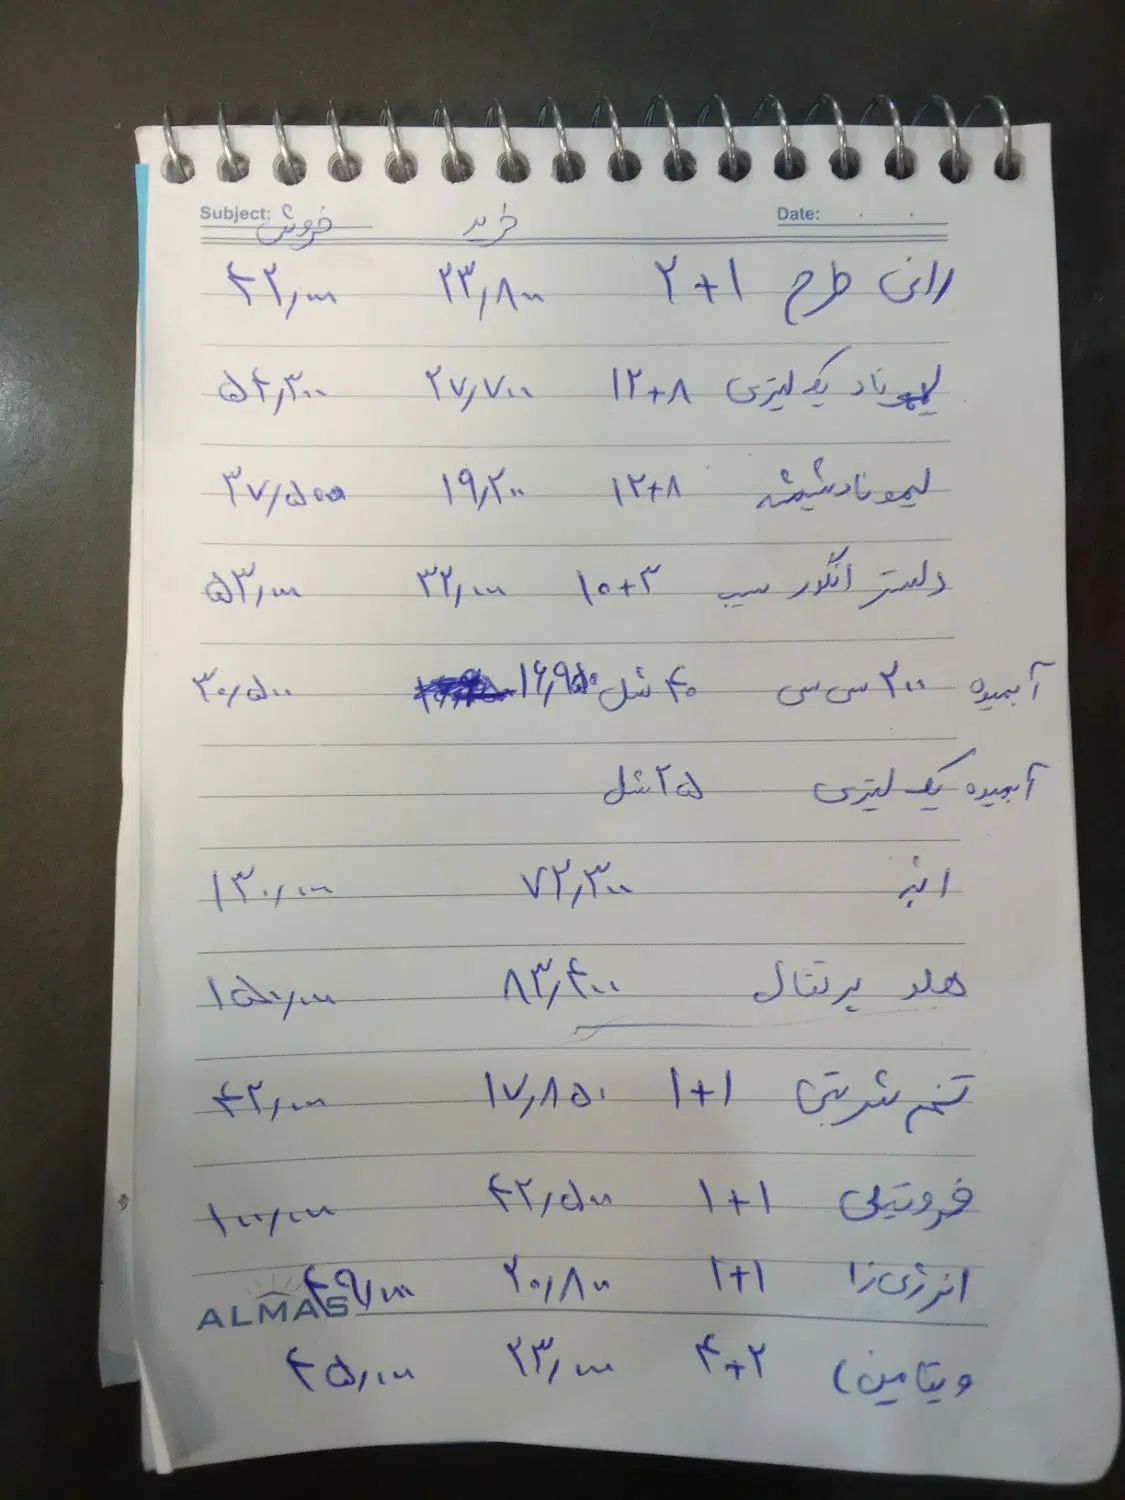 Subject: Date:
خرید فروش
رانی طرح ۲+۱ ۲۳٫۸۰۰ ۴۲٫۰۰۰
لیموناد یک لیتری ۱۲+۸ ۲۷٫۷۰۰ ۵۴٫۳۰۰
لیموناد شیشه ۱۲+۸ ۱۹٫۲۰۰ ۳۷٫۵۰۰
دلستر انگور سیب ۱۰+۳ ۳۲٫۰۰۰ ۵۳٫۰۰۰
آبمیوه ۲۰۰ سی سی ۴۰ شل ۱۶٫۹۵۰ ۳۰٫۵۰۰
آبمیوه یک لیتری ۲۵ شل
انبه ۷۲٫۳۰۰ ۱۳۰٫۰۰۰
هلو پرتقال ۸۳٫۴۰۰ ۱۵۰٫۰۰۰
تخم شربتی ۱+۱ ۱۷٫۸۵۰ ۴۲٫۰۰۰
فروتیلی ۱+۱ ۴۲٫۵۰۰ ۱۰۰٫۰۰۰
انرژی زا ۱+۱ ۲۰٫۸۰۰ ۴۹٫۰۰۰
ALMAS
ویتامین) ۴+۲ ۲۳٫۰۰۰ ۴۵٫۰۰۰